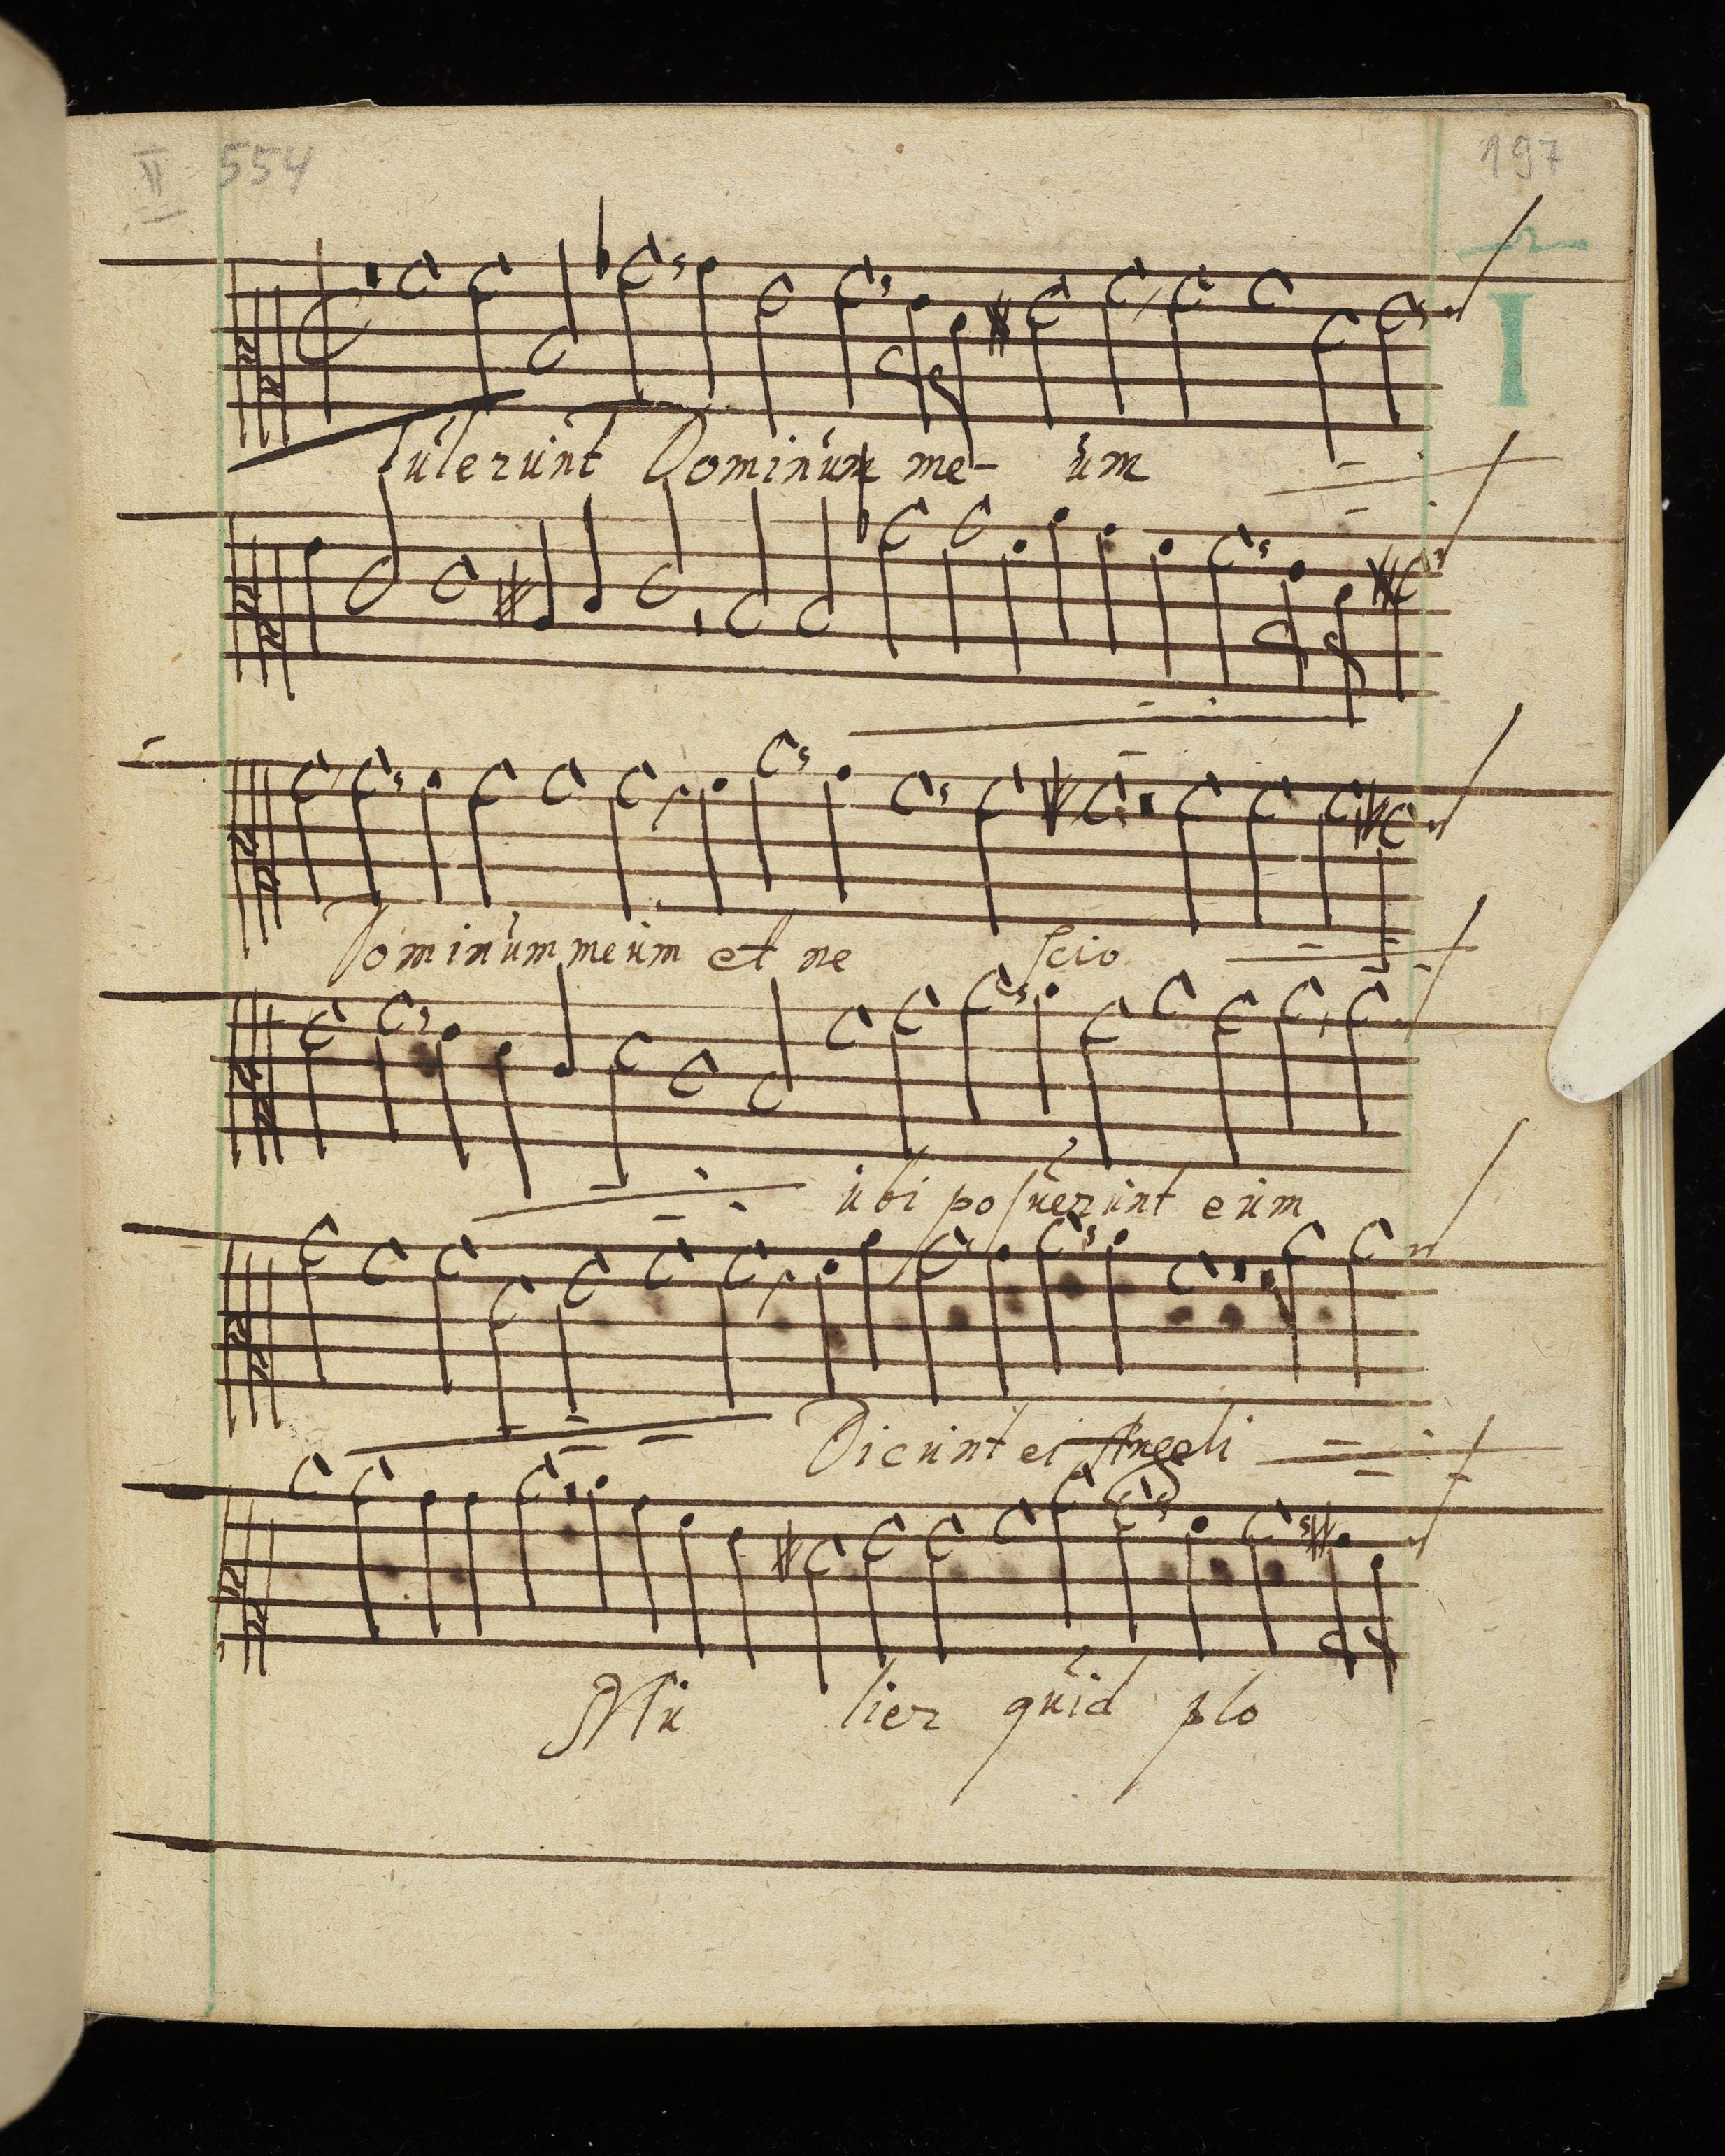 II 554
197
I
Tulerunt Dominum me- um
Dominum meum et ne scio
ubi posuerunt eum
Dicunt ei Angeli
Mu lier quid plo